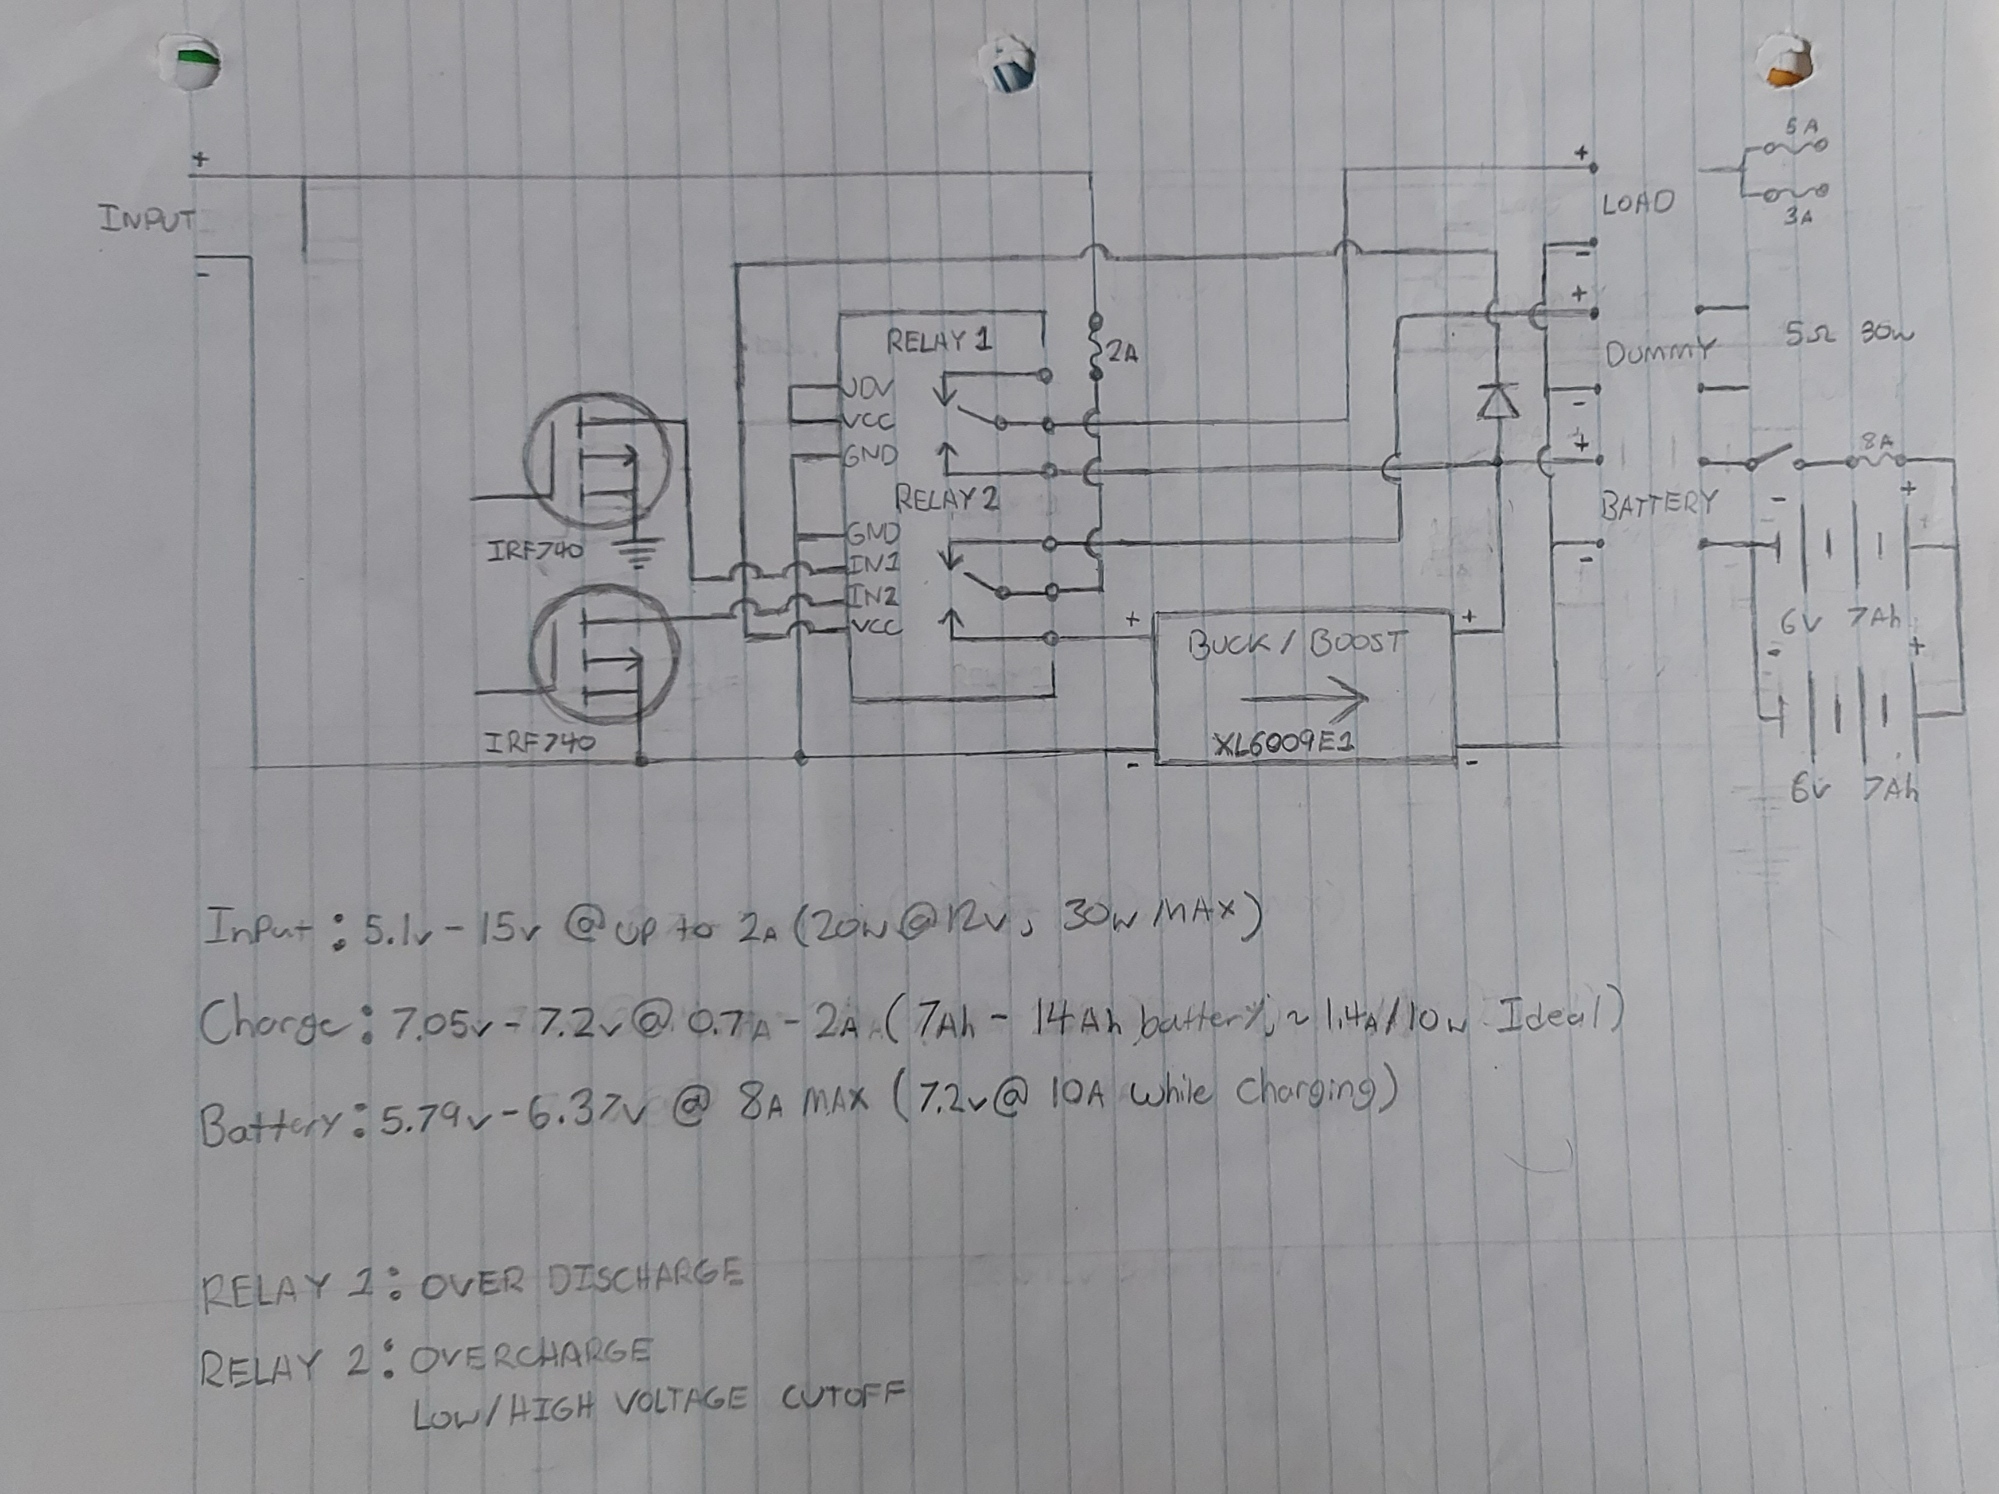 +
INPUT
-
+
LOAD
-
5A
3A
+
DUMMY
-
5Ω 30W
+
BATTERY
-
8A
-
+
+
6V 7Ah
-
+
6V 7Ah
2A
RELAY 1
JDV
VCC
GND
RELAY 2
GND
IN1
IN2
VCC
IRF740
IRF740
+
+
BUCK / BOOST
XL6009E1
-
-
Input: 5.1v - 15v @ up to 2A (20w @ 12v, 30w MAX)
Charge: 7.05v - 7.2v @ 0.7A - 2A (7Ah - 14Ah battery, ~ 1.4A/10w Ideal)
Battery: 5.79v - 6.37v @ 8A MAX (7.2v @ 10A while charging)
RELAY 1: OVER DISCHARGE
RELAY 2: OVERCHARGE
LOW/HIGH VOLTAGE CUTOFF